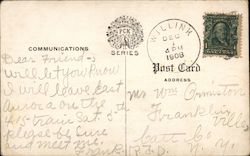 WILLINK
DEC
4 PM
1908
PCK
SERIES
COMMUNICATIONS
Post Card
ADDRESS
Dear Friend -
will let you know
I will leave East
Aurora on the
4:15 train Sat. 5"
please be sure
and meet me.
Mr Wm Ormiston
Franklin
ville
N.Y.
R.F.D.